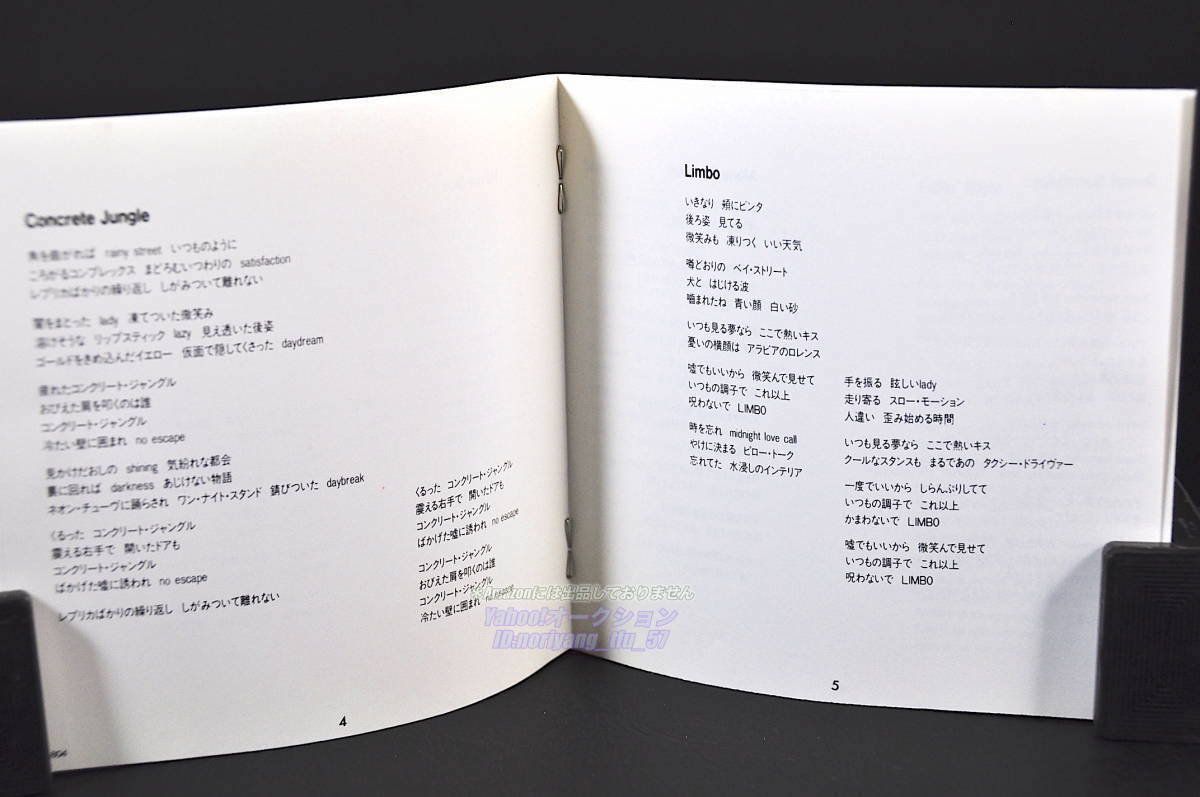 Concrete Jungle
角を曲がれば rainy street いつものように
ころがるコンプレックス まどろむいつわりの satisfaction
レプリカばかりの繰り返し しがみついて離れない
闇をまとった lady 凍てついた微笑み
溶けそうな リップスティック lazy 見え透いた後姿
ゴールドをきめ込んだイエロー 仮面で隠してくさった daydream
疲れたコンクリート・ジャングル
おびえた肩を叩くのは誰
コンクリート・ジャングル
冷たい壁に囲まれ no escape
見かけだおしの shining 気紛れな都会
裏に回れば darkness あじけない物語
ネオン・チューヴに踊らされ ワン・ナイト・スタンド 錆びついた daybreak
くるった コンクリート・ジャングル
震える右手で 開いたドアも
コンクリート・ジャングル
ばかげた嘘に誘われ no escape
レプリカばかりの繰り返し しがみついて離れない
くるった コンクリート・ジャングル
震える右手で 開いたドアも
コンクリート・ジャングル
ばかげた嘘に誘われ no escape
コンクリート・ジャングル
おびえた肩を叩くのは誰
コンクリート・ジャングル
冷たい壁に囲まれ no escape
4
Limbo
いきなり 頬にビンタ
後ろ姿 見てる
微笑みも 凍りつく いい天気
噂どおりの ベイ・ストリート
犬と はじける波
噛まれたね 青い顔 白い砂
いつも見る夢なら ここで熱いキス
憂いの横顔は アラビアのロレンス
嘘でもいいから 微笑んで見せて
いつもの調子で これ以上
呪わないで LIMBO
時を忘れ midnight love call
やけに決まる ピロー・トーク
忘れてた 水浸しのインテリア
手を振る 眩しいlady
走り寄る スロー・モーション
人違い 歪み始める時間
いつも見る夢なら ここで熱いキス
クールなスタンスも まるであの タクシー・ドライヴァー
一度でいいから しらんぷりしてて
いつもの調子で これ以上
かまわないで LIMBO
嘘でもいいから 微笑んで見せて
いつもの調子で これ以上
呪わないで LIMBO
5
※Amazonには出品しておりません
Yahoo!オークション
ID:noriyang_ifu_57